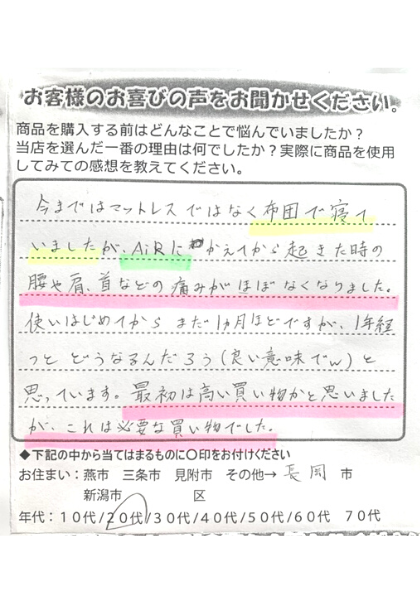 お客様のお喜びの声をお聞かせください。
商品を購入する前はどんなことで悩んでいましたか？
当店を選んだ一番の理由は何でしたか？実際に商品を使用
してみての感想を教えてください。
今まではマットレスではなく布団で寝て
いましたが、AiRにかえてから起きた時の
腰や肩、首などの痛みがほぼなくなりました。
使いはじめてからまだ1ヵ月ほどですが、1年経
つとどうなるんだろう(良い意味でw)と
思っています。最初は高い買い物かと思いました
が、これは必要な買い物でした。
◆下記の中から当てはまるものに〇印をお付けください
お住まい：燕市 三条市 見附市 その他→長岡 市
新潟市 区
年代：10代/20代/30代/40代/50代/60代 70代